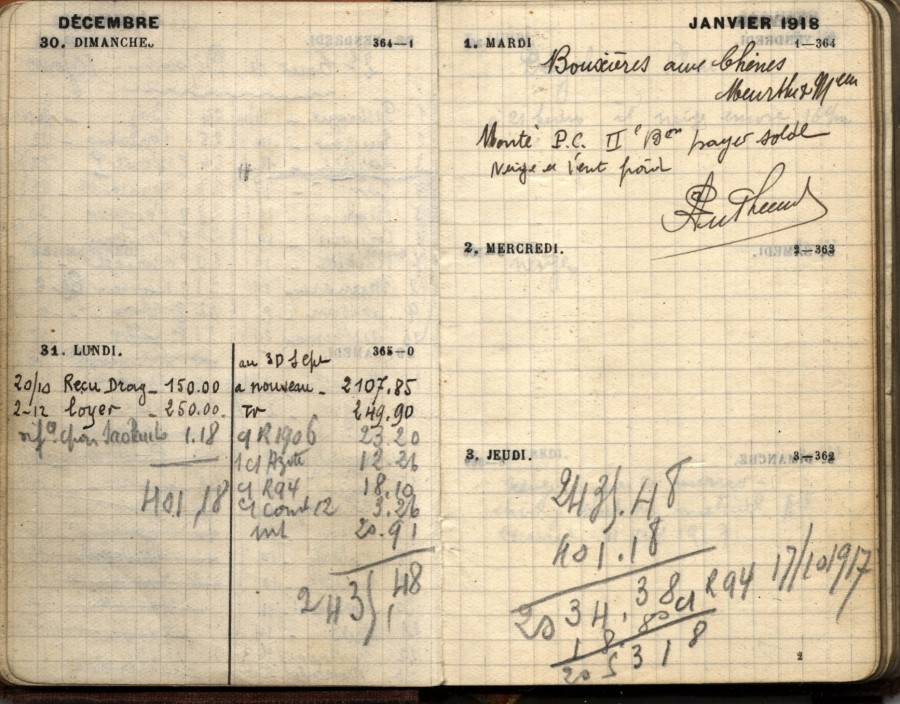 DÉCEMBRE
30. DIMANCHE. 364—1
31. LUNDI. 365—0
20/10 Recu Drag - 150.00
2-12 loyer - 250.00.
1.18
401,18
au 30 Sept
a nouveau - 2107.85
Tr 249.90
cl R1906 23.20
1 cl Azote 12.26
cl R94 18.10
cl Cond 12 3.26
int 20.91
2435,48
JANVIER 1918
1. MARDI 1—364
Bouxières aux Chênes
Meurthe & M
Monté P.C. IIe Bon payer solde
Neige et Vent froid
2. MERCREDI. 2—363
3. JEUDI. 3—362
2435.48
401.18
2034.38 cl R94 17/10 1917
18.80
205318
2